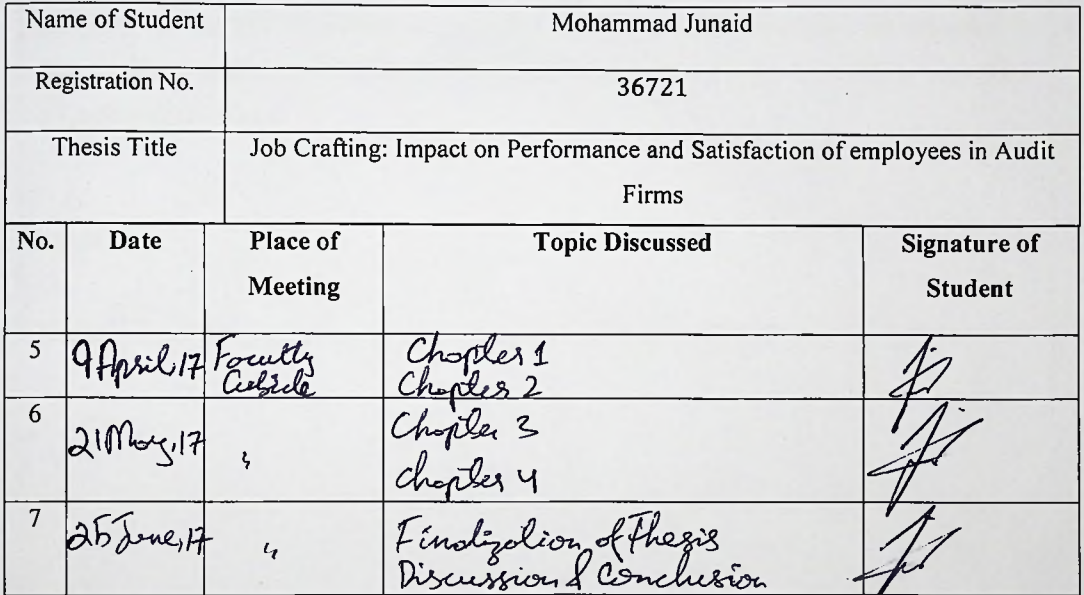 Name of Student Mohammad Junaid
Registration No. 36721
Thesis Title Job Crafting: Impact on Performance and Satisfaction of employees in Audit
Firms
No. Date Place of Topic Discussed Signature of
Meeting Student
5 9 April, 17 Faculty Chapter 1
Cubicle Chapter 2
6 21 May, 17 " Chapter 3
Chapter 4
7 25 June, 17 " Finalization of Thesis
Discussion & Conclusion